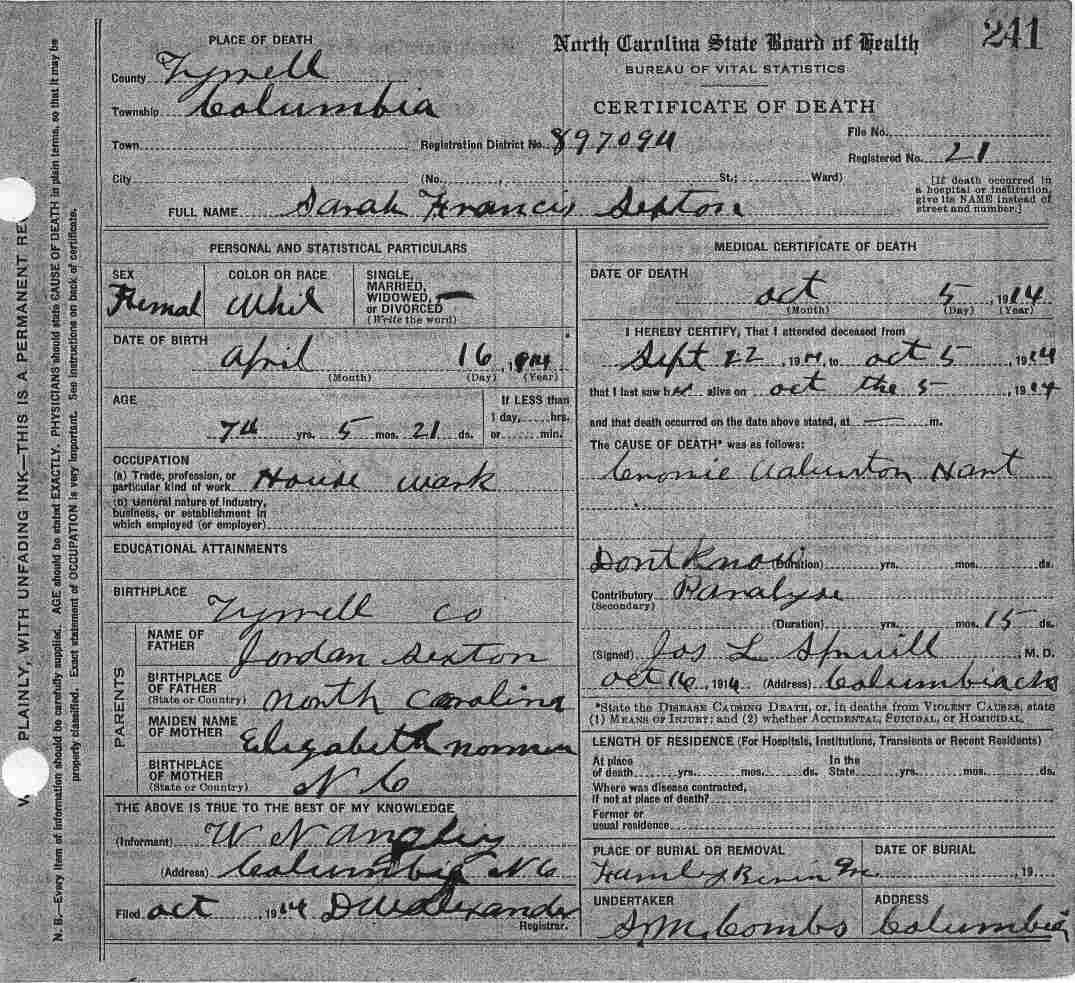 241
North Carolina State Board of Health
BUREAU OF VITAL STATISTICS
CERTIFICATE OF DEATH
PLACE OF DEATH
County Tyrrell
Township Columbia
Town
Registration District No. 897094
File No.
Registered No. 21
City (No. St.; Ward)
[If death occurred in
a hospital or institution,
give its NAME instead of
street and number.]
FULL NAME Sarah Francis Sexton
PERSONAL AND STATISTICAL PARTICULARS
SEX
Femal
COLOR OR RACE
Whit
SINGLE,
MARRIED,
WIDOWED, —
or DIVORCED
(Write the word)
DATE OF BIRTH
April 16, 1
(Month) (Day) (Year)
AGE
74 yrs. 5 mos. 21 ds.
If LESS than
1 day, hrs.
or min.
OCCUPATION
(a) Trade, profession, or
particular kind of work House wark
(b) General nature of industry,
business, or establishment in
which employed (or employer)
EDUCATIONAL ATTAINMENTS
BIRTHPLACE
Tyrrell Co
PARENTS
NAME OF
FATHER
Jordan Sexton
BIRTHPLACE
OF FATHER
(State or Country) North Carolina
MAIDEN NAME
OF MOTHER Elizabeth Norman
BIRTHPLACE
OF MOTHER
(State or Country) N C
THE ABOVE IS TRUE TO THE BEST OF MY KNOWLEDGE
(Informant) W N
(Address) Columbia N C
Filed Oct 1914 D W Alexander
Registrar.
MEDICAL CERTIFICATE OF DEATH
DATE OF DEATH
Oct 5, 1914
(Month) (Day) (Year)
I HEREBY CERTIFY, That I attended deceased from
Sept 22, 1914, to Oct 5, 1914
that I last saw her alive on Oct the 5, 1914
and that death occurred on the date above stated, at — m.
The CAUSE OF DEATH* was as follows:
Dont Know (Duration) yrs. mos. ds.
Contributory
(Secondary)
(Duration) yrs. mos. 15 ds.
(Signed) Jos L Spruill M. D.
Oct 16, 1914 (Address) Columbia
*State the DISEASE CAUSING DEATH, or, in deaths from VIOLENT CAUSES, state
(1) MEANS OF INJURY; and (2) whether ACCIDENTAL, SUICIDAL, or HOMICIDAL.
LENGTH OF RESIDENCE (For Hospitals, Institutions, Transients or Recent Residents)
At place
of death yrs. mos. ds.
In the
State yrs. mos. ds.
Where was disease contracted,
if not at place of death?
Former or
usual residence
PLACE OF BURIAL OR REMOVAL
DATE OF BURIAL
, 19
UNDERTAKER
S M Combs
ADDRESS
Columbia
PLAINLY, WITH UNFADING INK—THIS IS A PERMANENT RE
N. B.—Every item of information should be carefully supplied. AGE should be stated EXACTLY. PHYSICIANS should state CAUSE OF DEATH in plain terms, so that it may be
properly classified. Exact statement of OCCUPATION is very important. See instructions on back of certificate.